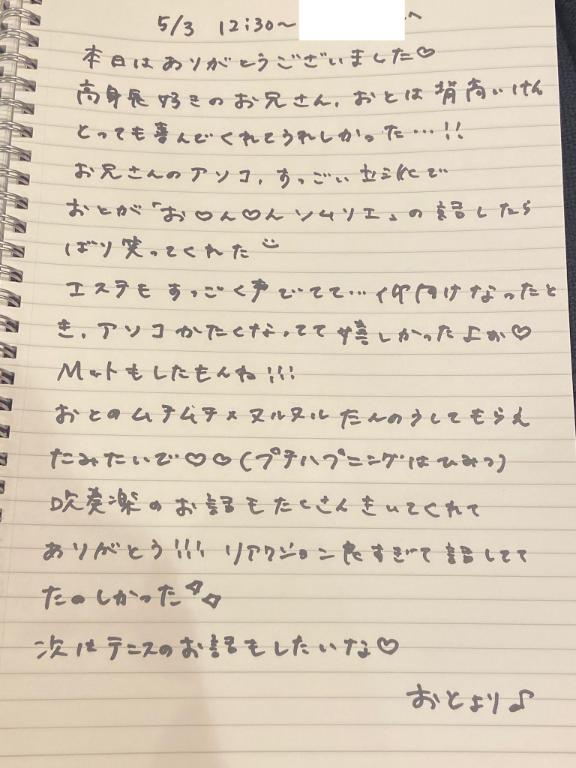 5/3 12:30〜 へ
本日はありがとうございました♡
高身長好きのお兄さん、おとは背高いけん
とっても喜んでくれてうれしかった…!!
お兄さんのアソコ、すっごい立派で
おとが「お♡ん♡んソムリエ」の話したら
ばり笑ってくれた
エステもすっごく声でてて…仰向けなったと
き、アソコかたくなってて嬉しかったよぉ♡
Mットもしたもんね!!!
おとのムチムチ×ヌルヌルたんのうしてもらえ
たみたいで♡♡(プチハプニングはひみつ)
吹奏楽のお話もたくさんきいてくれて
ありがとう!!! リアクション良すぎて話してて
たのしかった
次はテニスのお話もしたいな♡
おとより♪